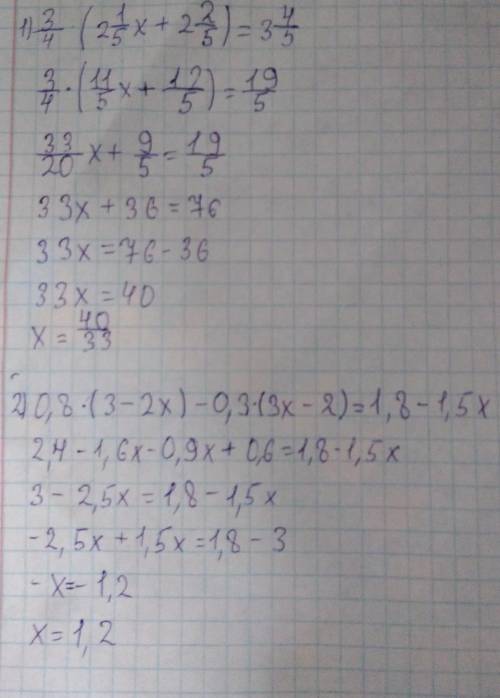 1) 3/4 · (2 1/5 x + 2 2/5) = 3 4/5
3/4 · (11/5 x + 12/5) = 19/5
33/20 x + 9/5 = 19/5
33x + 36 = 76
33x = 76 - 36
33x = 40
x = 40/33
2) 0,8 · (3 - 2x) - 0,3 · (3x - 2) = 1,8 - 1,5x
2,4 - 1,6x - 0,9x + 0,6 = 1,8 - 1,5x
3 - 2,5x = 1,8 - 1,5x
-2,5x + 1,5x = 1,8 - 3
-x = -1,2
x = 1,2